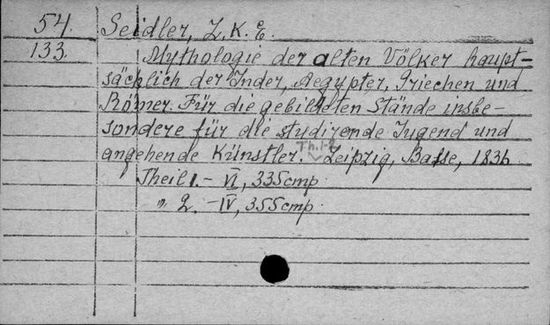 54. Seidler, L. K. E.
133. Mythologie der alten Völker haupt-
sächlich der Inder, Aegypter, Griechen und
Römer. Für die gebildeten Stände insbe-
sondere für die studirende Jugend und
angehende Künstler. Th. 1-2 Leipzig, Basse, 1836
Theil 1. - VI, 335 cmp
" 2. - IV, 355 cmp.